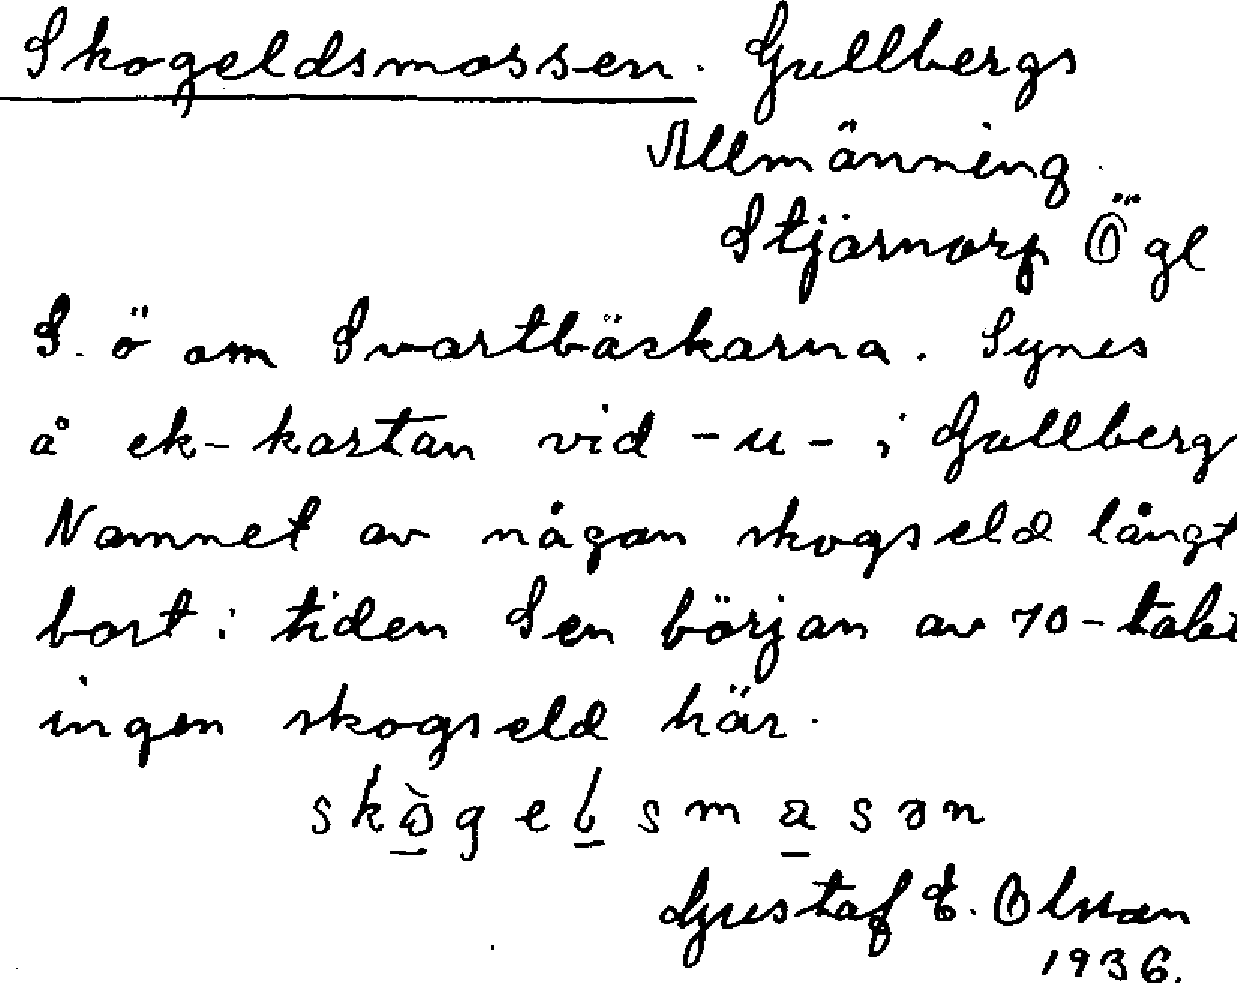 Skogeldsmossen. Gullbergs
Allmänning.
Stjärnorp Ögl
S. ö om Svartbäckarna. Synes
å ek-kartan vid -u- i Gullberg
Namnet av någon skogseld långt
bort i tiden Sen början av 70-talet
ingen skogseld här.
Gustaf E. Olsson
1936.